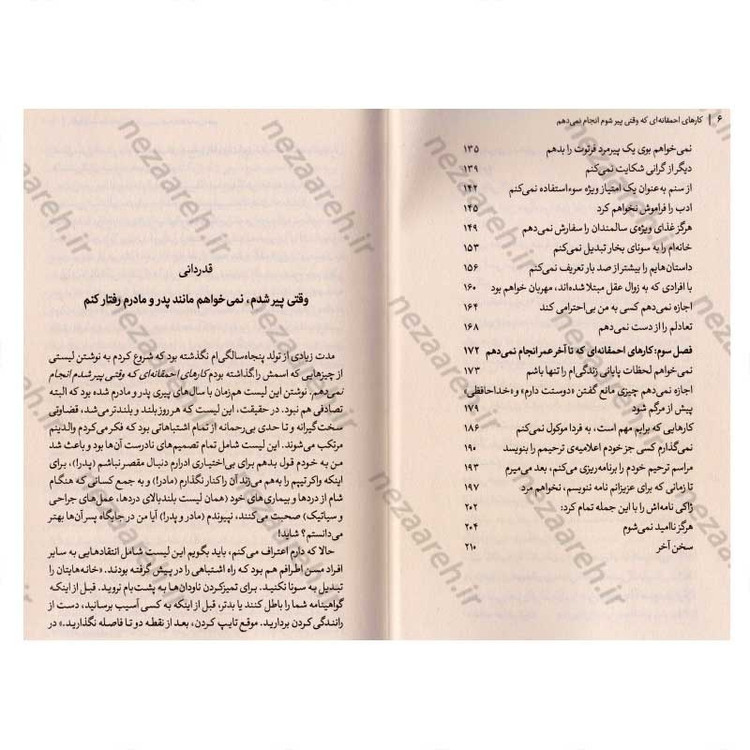 ۶ | کارهای احمقانه‌ای که وقتی پیر شوم انجام نمی‌دهم
نمی‌خواهم بوی یک پیرمرد فرتوت را بدهم ۱۳۵
دیگر از گرانی شکایت نمی‌کنم ۱۳۹
از سنم به‌عنوان یک امتیاز ویژه سوءاستفاده نمی‌کنم ۱۴۲
ادب را فراموش نخواهم کرد ۱۴۵
هرگز غذای ویژه‌ی سالمندان را سفارش نمی‌دهم ۱۴۹
خانه‌ام را به سونای بخار تبدیل نمی‌کنم ۱۵۳
داستان‌هایم را بیشتر از صد بار تعریف نمی‌کنم ۱۵۶
با افرادی که به زوال عقل مبتلا شده‌اند، مهربان خواهم بود ۱۶۰
اجازه نمی‌دهم کسی به من بی‌احترامی کند ۱۶۴
تعادلم را از دست نمی‌دهم ۱۶۸
فصل سوم: کارهای احمقانه‌ای که تا آخر عمر انجام نمی‌دهم ۱۷۲
نمی‌خواهم لحظات پایانی زندگی‌ام را تنها باشم ۱۷۳
اجازه نمی‌دهم چیزی مانع گفتن «دوستت دارم» و «خداحافظی»
پیش از مرگم شود ۱۷۹
کارهایی که برایم مهم است، به فردا موکول نمی‌کنم ۱۸۶
نمی‌گذارم کسی جز خودم اعلامیه‌ی ترحیمم را بنویسد ۱۹۰
مراسم ترحیم خودم را برنامه‌ریزی می‌کنم، بعد می‌میرم ۱۹۳
تا زمانی که برای عزیزانم نامه ننویسم، نخواهم مرد ۱۹۷
ژاکی نامه‌اش را با این جمله تمام کرد: ۲۰۲
هرگز ناامید نمی‌شوم ۲۰۴
سخن آخر ۲۱۰
قدردانی
وقتی پیر شدم، نمی‌خواهم مانند پدر و مادرم رفتار کنم
مدت زیادی از تولد پنجاه‌سالگی‌ام نگذشته بود که شروع کردم به نوشتن لیستی
از چیزهایی که اسمش را گذاشته بودم کارهای احمقانه‌ای که وقتی پیر شدم انجام
نمی‌دهم. نوشتن این لیست هم‌زمان با سال‌های پیری پدر و مادرم شده بود که البته
تصادفی هم نبود. در حقیقت، این لیست که هر روز بلند و بلندتر می‌شد، قضاوتی
سخت‌گیرانه و تا حدی بی‌رحمانه از تمام اشتباهاتی بود که فکر می‌کردم والدینم
مرتکب می‌شوند. این لیست شامل تمام تصمیم‌های نادرست آن‌ها بود و باعث شد
من به خودم قول بدهم برای بی‌اختیاری ادرارم دنبال مقصر نباشم (پدر!)، برای
اینکه واکر تیپم را به‌هم می‌زند آن را کنار نگذارم (مادر!) و به جمع کسانی که هنگام
شام از دردها و بیماری‌های خود (همان لیست بلندبالای دردها، عمل‌های جراحی
و سیاتیک) صحبت می‌کنند، نپیوندم (مادر و پدر!) آیا من در جایگاه پسر آن‌ها بهتر
می‌دانستم؟ شاید!
حالا که دارم اعتراف می‌کنم، باید بگویم این لیست شامل انتقادهایی به سایر
افراد مسن اطرافم هم بود که راه اشتباهی را در پیش گرفته بودند. «خانه‌هایتان را
تبدیل به سونا نکنید. برای تمیز کردن ناودان‌ها به پشت‌بام نروید. قبل از اینکه
گواهینامه شما را باطل کنند یا بدتر، قبل از اینکه به کسی آسیب برسانید، دست از
رانندگی کردن بردارید. موقع تایپ کردن، بعد از نقطه دو تا فاصله نگذارید.» در
nezaareh.ir
nezaareh.ir
nezaareh.ir
nezaareh.ir
nezaareh.ir
nezaareh.ir
nezaareh.ir
nezaareh.ir